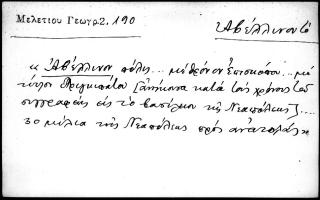 Μελετίου Γεωγρ. 2, 190
Ἀβέλλινον
κ Ἀβέλλινον πόλις... μὲ θρόνον Ἐπισκόπου... μὲ
τίτλον Πριγκιπάτου [ἀνήκουσα κατὰ τοὺς χρόνους τοῦ
συγγραφέως εἰς τὸ βασίλειον τῆς Νεαπόλεως]....
30 μίλια τῆς Νεαπόλεως πρὸς ἀνατολὰς »